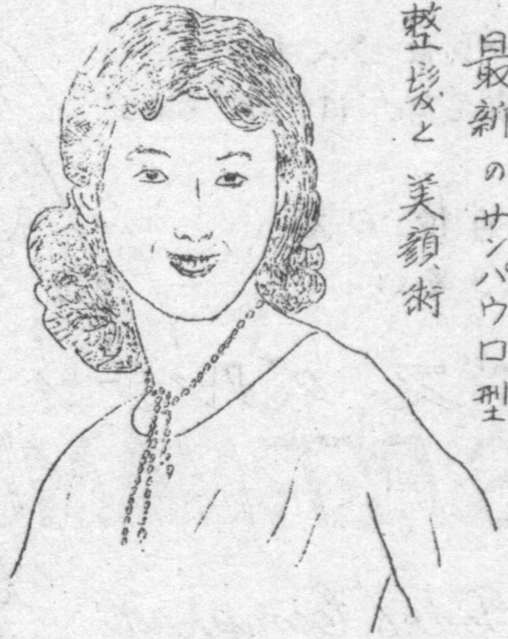 最新のサンパウロ型
整髪と美顔術